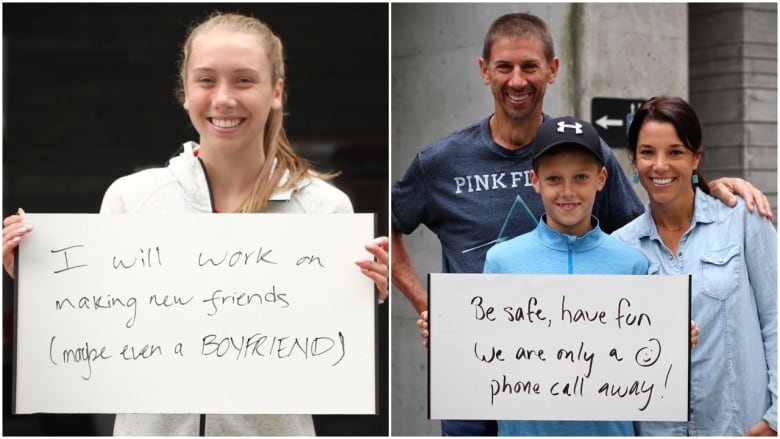 I will work on
making new friends
(maybe even a BOYFRIEND)
PINK FL
Be safe, have fun
We are only a ☺
phone call away!